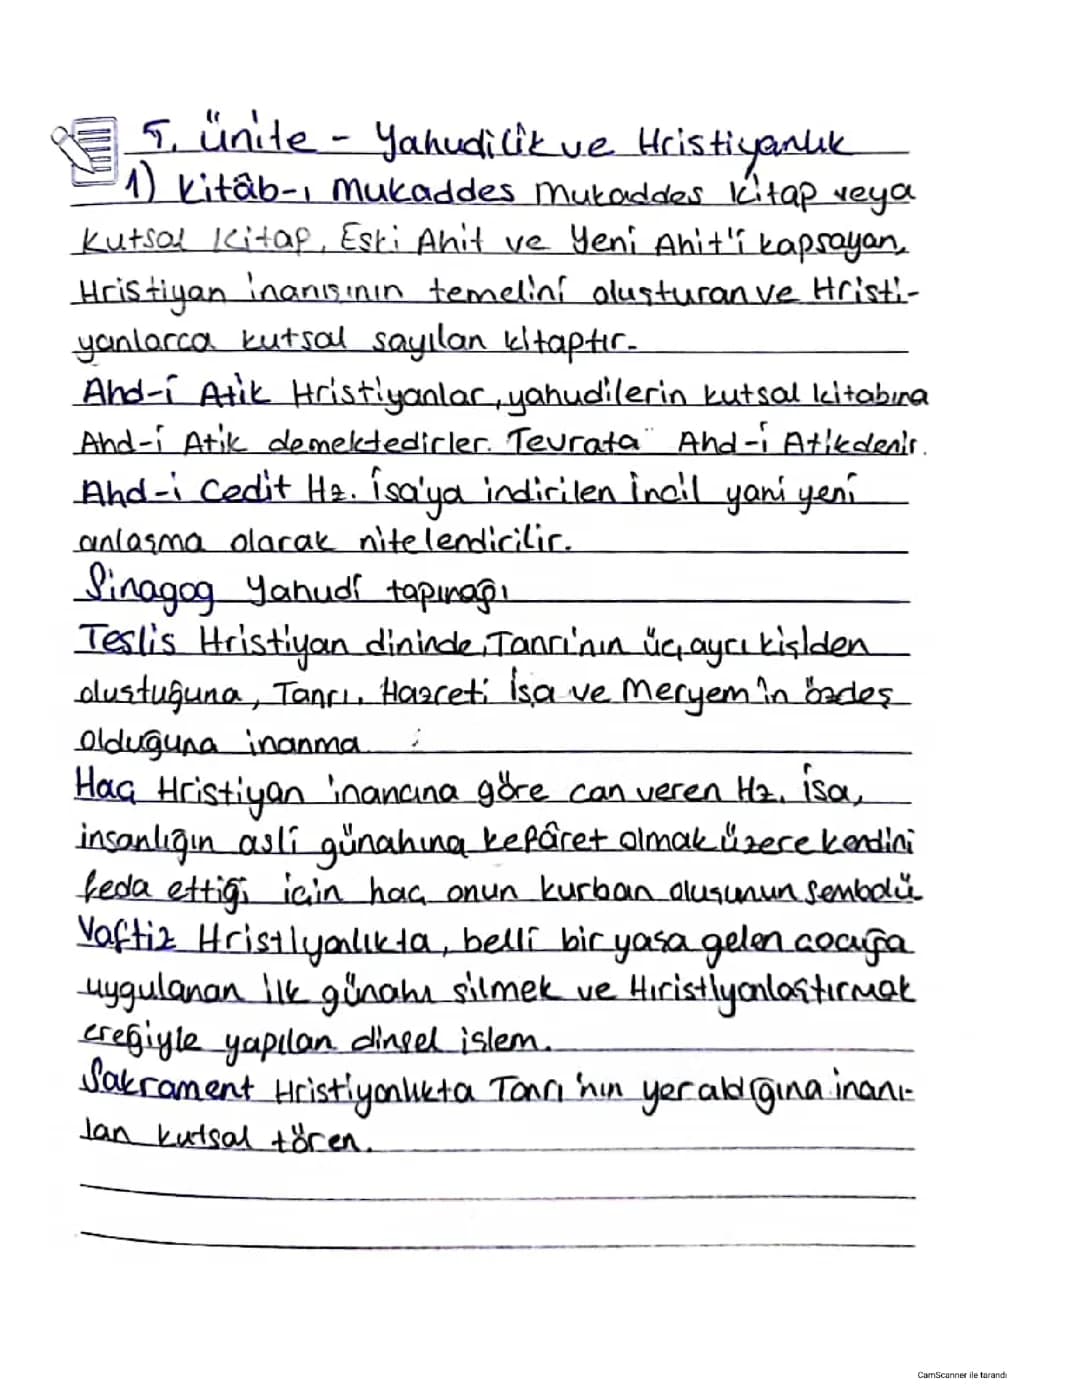 5. ünite - Yahudilik ve Hristiyanlık
1) Kitâb-ı Mukaddes Mukaddes Kitap veya
Kutsal Kitap, Eski Ahit ve Yeni Ahit'i kapsayan,
Hristiyan inanışının temelini oluşturan ve Hristi-
yanlarca kutsal sayılan kitaptır.
Ahd-i Atik Hristiyanlar, yahudilerin kutsal kitabına
Ahd-i Atik demektedirler. Tevrata" Ahd-i Atikdenir.
Ahd-i Cedit Hz. İsa'ya indirilen İncil yani yeni
anlaşma olarak nitelendirilir.
Sinagog Yahudi tapınağı
Teslis Hristiyan dininde, Tanrı'nın üç ayrı kişiden
oluştuğuna, Tanrı, Hazreti İsa ve Meryem'in özdeş
olduğuna inanma
Haç Hristiyan inancına göre can veren Hz. İsa,
insanlığın asli günahına kefâret olmak üzere kendini
feda ettiği için haç onun kurban oluşunun sembolü
Vaftiz Hristiyanlıkta, belli bir yaşa gelen çocuğa
uygulanan ilk günahı silmek ve Hıristiyanlaştırmak
ereğiyle yapılan dinsel işlem.
Sakrament Hristiyanlıkta Tanrı'nın yer aldığına inanı-
lan kutsal tören.
CamScanner ile tarandı